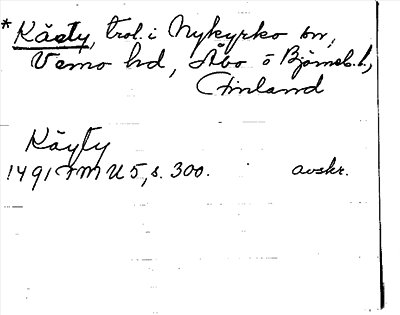 * Kästy, trol. i Nykyrko sn,
Vemo hd, Åbo o Björneb. l.,
Finland
Käyty
1491 FMU 5, s. 300. avskr.